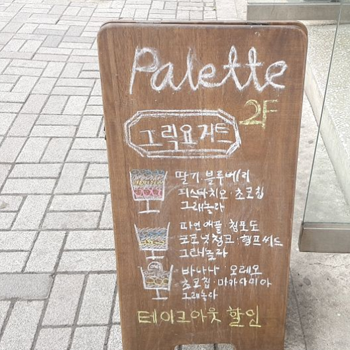 Palette
2F
그릭요거트
딸기 블루베리
피스타치오 초코칩
그래놀라
파인애플 청포도
코코넛청크·햄프씨드
그래놀라
바나나 오레오
초코칩·마카다미아
그래놀라
테이크아웃 할인